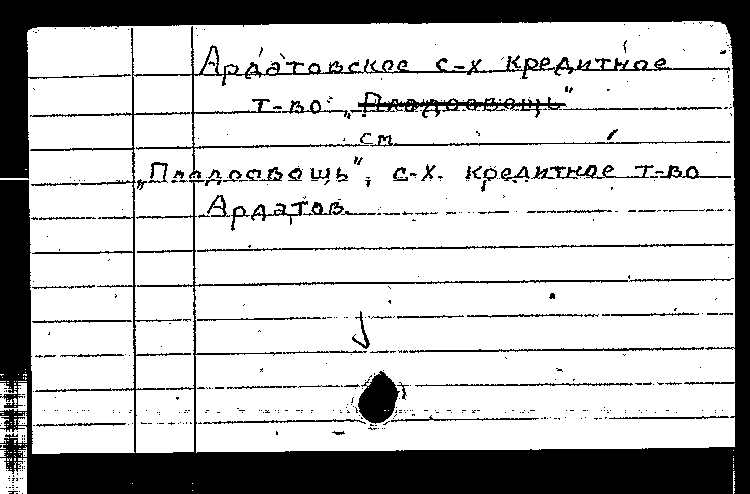 Ардатовское с-х кредитное
т-во „Плодоовощь“
см.
„Плодоовощь“, с-х. кредитное т-во
Ардатов.